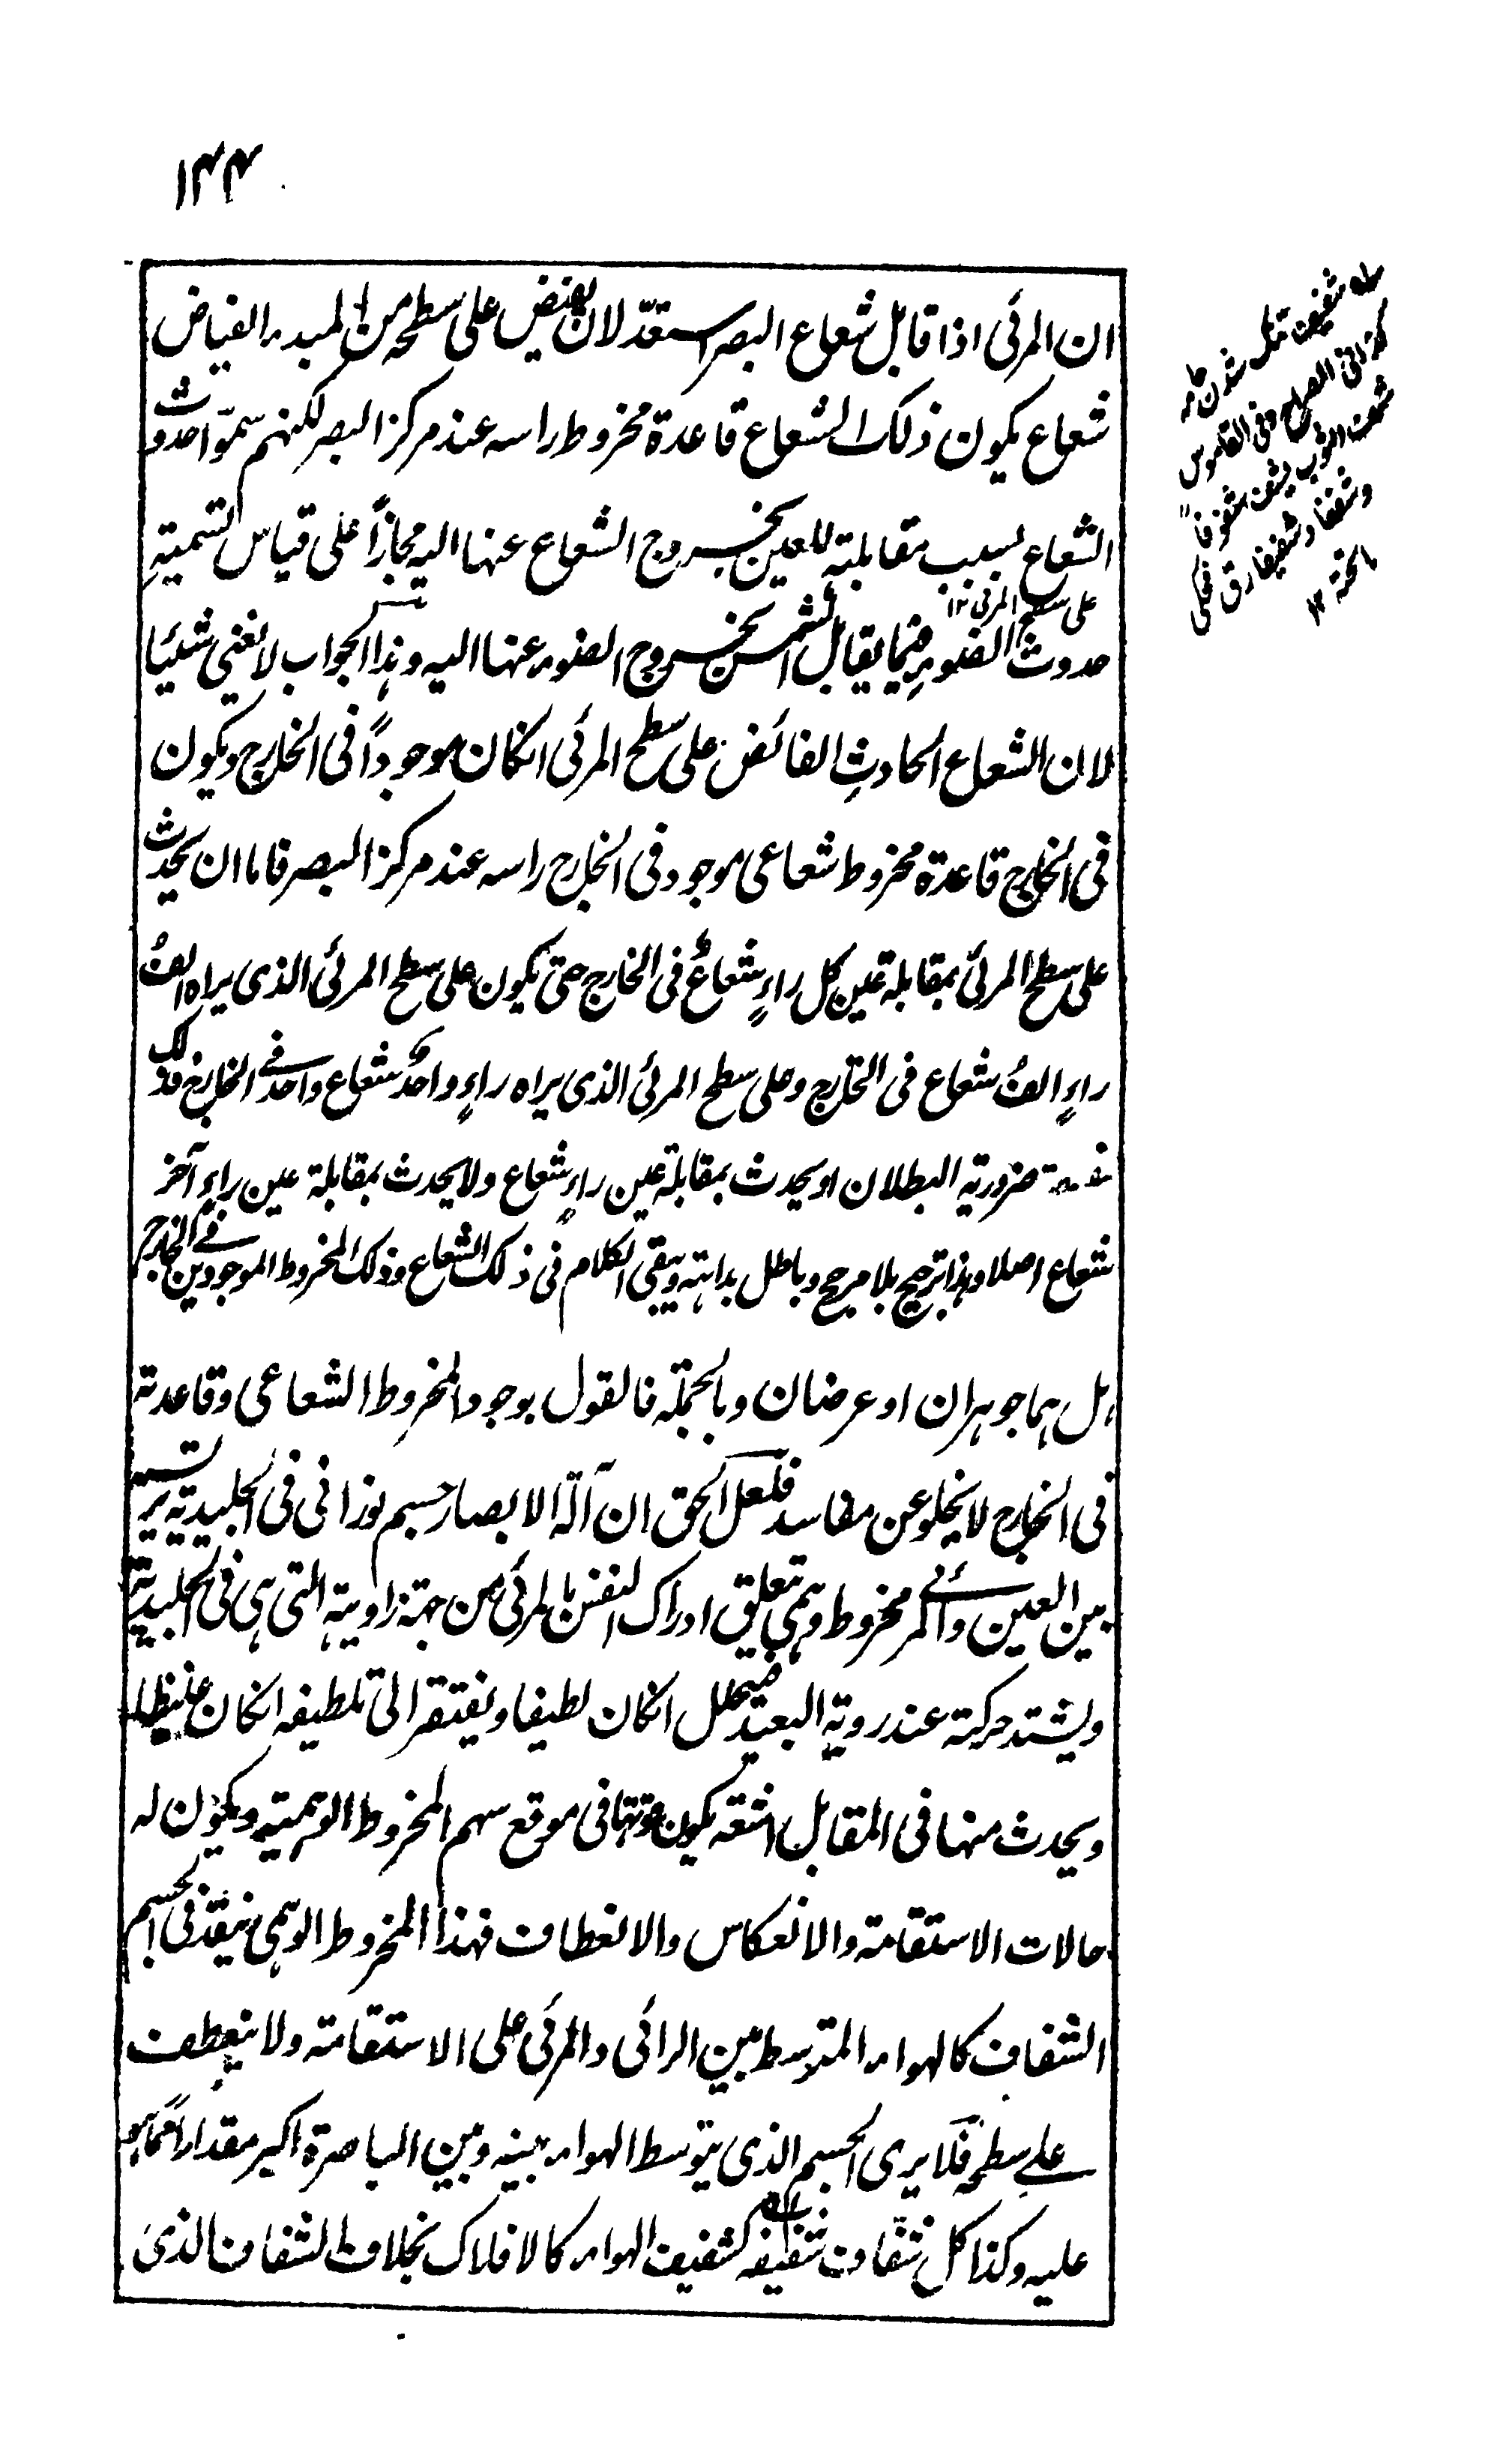 ١٤٤
ان المرئى اذا قابل شعاع البصر استعد لان يفيض على سطحه من المبدء الفياض
شعاع يكون ذلك الشعاع قاعدة مخروط راسه عند مركز البصر لكنهم سموا حدوث
الشعاع بسبب مقابلته للعين بخروج الشعاع عنها اليه مجازاً على قياس تسمية
على سطح المرئى ١٢
حدوث الضوء فيما يقابل الشمس بخروج الضوء عنها اليه وهذا الجواب لا يغنى شيئا
لان الشعاع الحادث الفائض على سطح المرئى انكان موجوداً فى الخارج ويكون
فى الخارج قاعدة مخروط شعاعى موجود فى الخارج راسه عند مركز البصر فاما ان يحدث
على سطح المرئى بمقابلة عين كل راءٍ شعاعٌ فى الخارج حتى يكون على سطح المرئى الذى يراه الفُ
راءٍ الفُ شعاع فى الخارج وعلى سطح المرئى الذى يراه راءٍ واحدٌ شعاع واحد فى الخارج وذلك
ضرورية البطلان او يحدث بمقابلة عين راءٍ شعاع ولا يحدث بمقابلة عين راءٍ آخر
شعاع اصلا وهذا ترجيح بلا مرجح وباطل بداهته ويبقى الكلام فى ذلك الشعاع وذلك المخروط الموجودين فى الخارج
هل هما جوهران او عرضان وبالجملة فالقول بوجود المخروط الشعاعى وقاعدته
فى الخارج لا يخلو عن مفاسد فلعل الحق ان آلة الابصار جسم نورانى فى الجليدية يرتسم
بين العين والمرئى مخروط وهمى يتعلق ادراك النفس بالمرئى من جهة زاويته التى هى فى الجليدية
ويشتد حركته عند روية البعيد فيتحلل انكان لطيفا ويفتقر الى تلطيفه انكان غليظا
ويحدث منها فى المقابل اشعة يكون قوتها فى موقع سهم المخروط الوهمية ويكون له
حالات الاستقامة والانعكاس والانعطاف فهذا المخروط الوهمى ينفذ فى الجسم
الشفاف كالهواء المتوسط بين الرائى والمرئى على الاستقامة ولا ينعطف
على سطحه فلا يرى الجسم الذى يتوسط الهواء بينه وبين الباصرة اكبر مقداراً مما هو
عليه وكذا كل شفاف شفيفه كشفيف الهواء كالافلاك بخلاف الشفاف الذى
له شفيف تنك شدن جامه
كذا فى الصراح وفى القاموس
شف الثوب يشف شفوفاً
وشفيفا رق فحكى
ما تحته ١٢